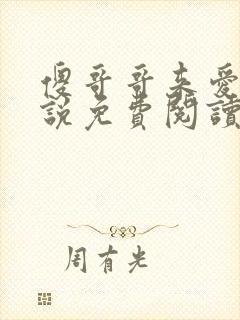 傻哥哥来愛
說免費閱讀
周有光